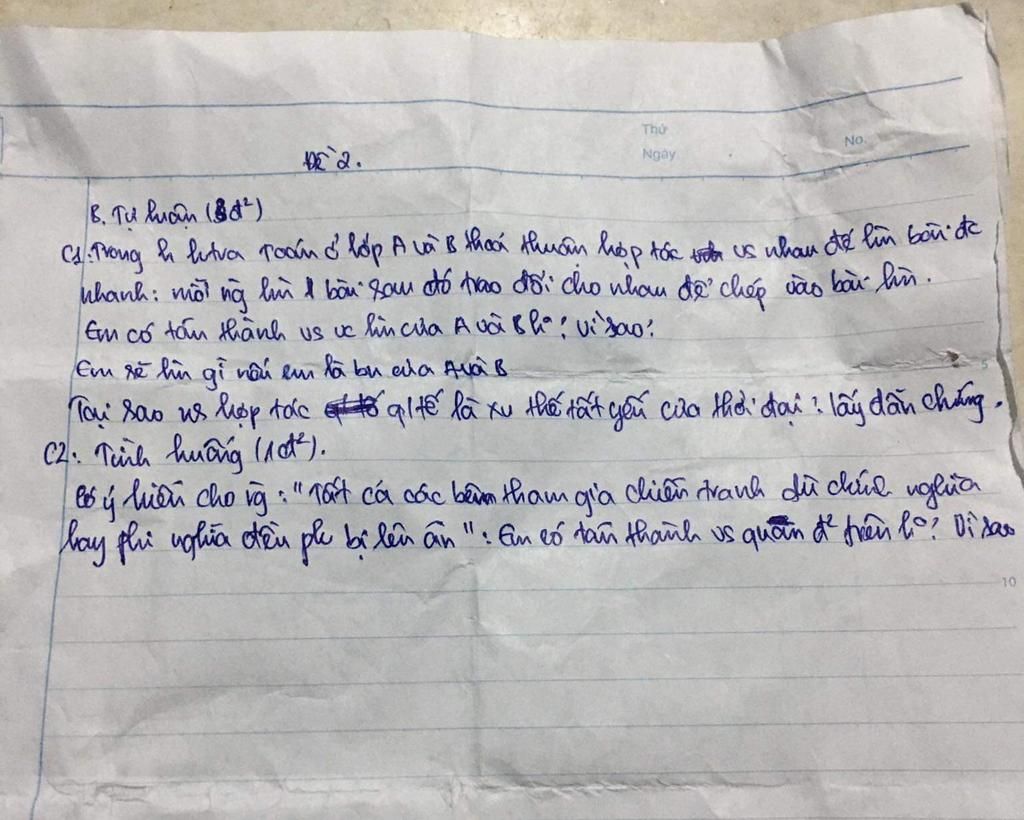 Thứ
Ngày
No.
Đề 2.
B. Tự luận (đ²)
C1: Trong h ktra Toán ở lớp A và B thoả thuận hợp tác vs nhau để làm bài đc
nhanh: mỗi ng làm 1 bài sau đó trao đổi cho nhau để chép vào bài làm.
Em có tán thành vs vc làm của A và B k°? Vì sao?
Em sẽ làm gì nếu em là bn của A và B
Tại sao vs hợp tác q/tế là xu thế tất yếu của thời đại? lấy dẫn chứng.
5
C2: Tình huống (1đ²).
Có ý kiến cho rg: "Tất cả các bên tham gia chiến tranh dù chính nghĩa
hay phi nghĩa đều ph bị lên án": Em có tán thành vs quan đ² trên k°? Vì sao
10